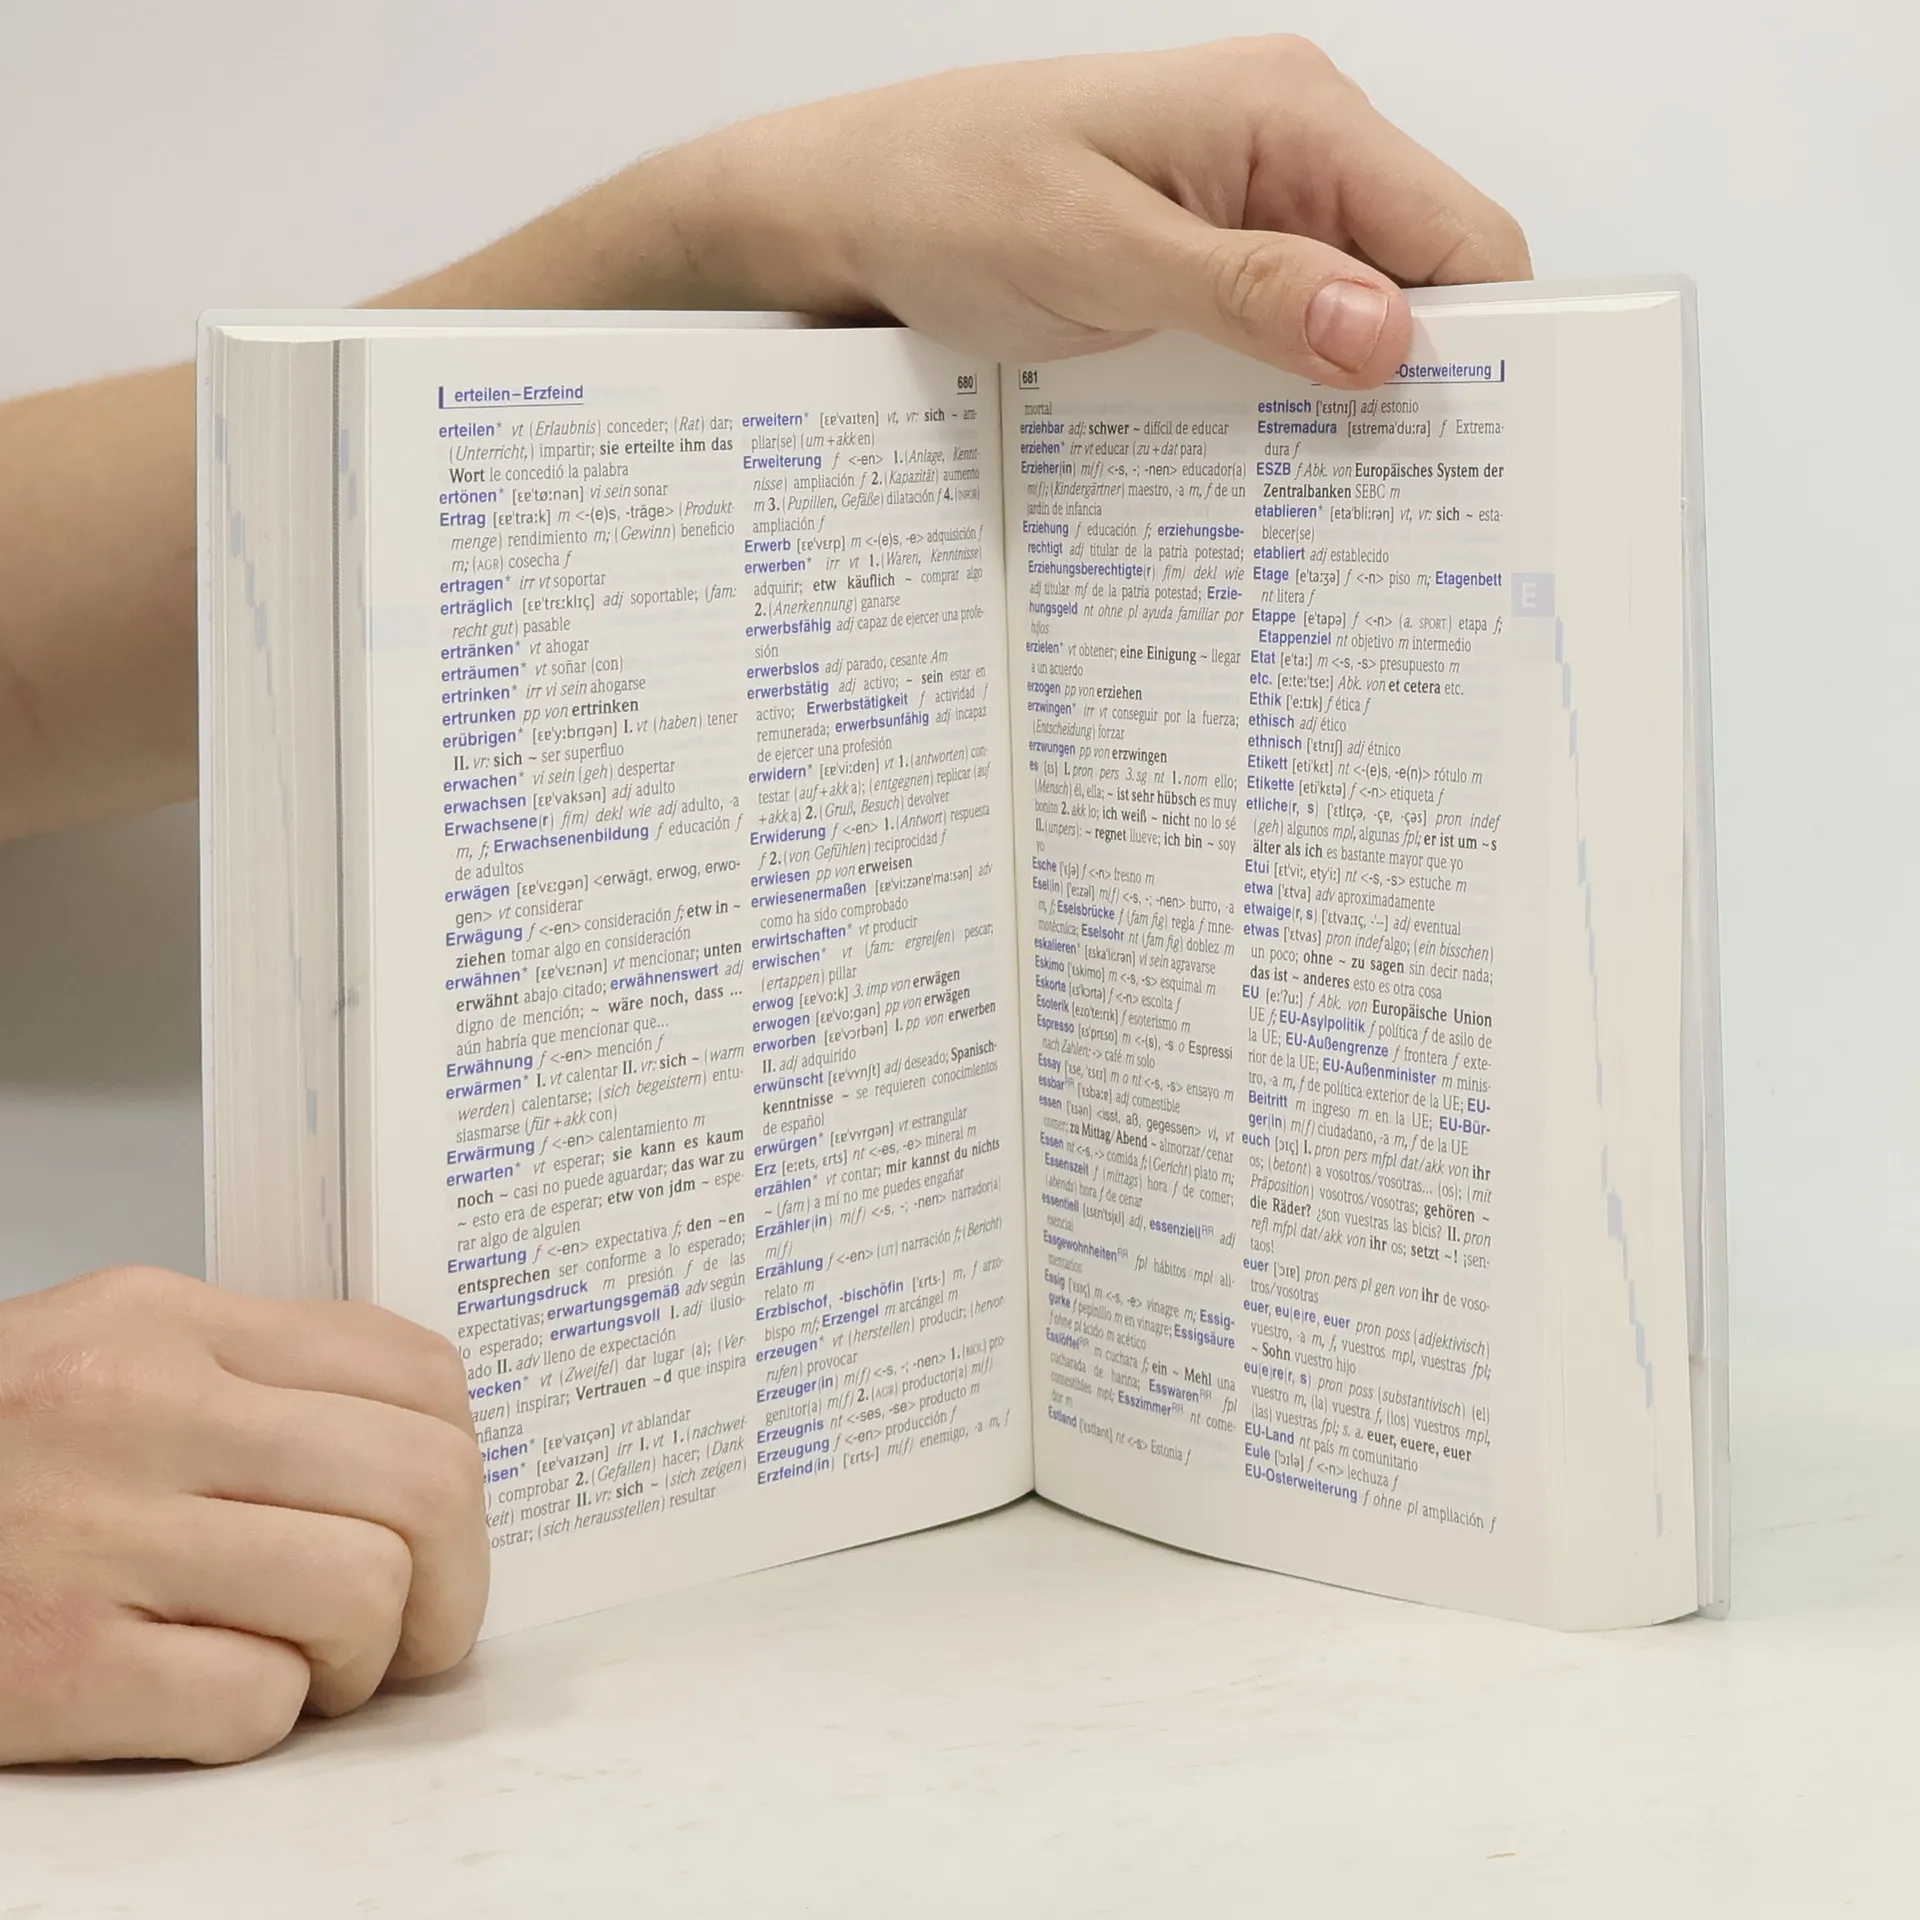 erteilen–Erzfeind
680
erteilen* vt (Erlaubnis) conceder; (Rat) dar;
(Unterricht,) impartir; sie erteilte ihm das
Wort le concedió la palabra
ertönen* [ɛɐ'tøːnən] vi sein sonar
Ertrag [ɛɐ'traːk] m <-(e)s, -träge> (Produkt-
menge) rendimiento m; (Gewinn) beneficio
m; (AGR) cosecha f
ertragen* irr vt soportar
erträglich [ɛɐ'trɛːklɪç] adj soportable; (fam:
recht gut) pasable
ertränken* vt ahogar
erträumen* vt soñar (con)
ertrinken* irr vi sein ahogarse
ertrunken pp von ertrinken
erübrigen* [ɛɐ'yːbrɪgən] I. vt (haben) tener
II. vr: sich ~ ser superfluo
erwachen* vi sein (geh) despertar
erwachsen [ɛɐ'vaksən] adj adulto
Erwachsene(r) f(m) dekl wie adj adulto, -a
m, f; Erwachsenenbildung f educación f
de adultos
erwägen [ɛɐ'vɛːgən] <erwägt, erwog, erwo-
gen> vt considerar
Erwägung f <-en> consideración f; etw in ~
ziehen tomar algo en consideración
erwähnen* [ɛɐ'vɛːnən] vt mencionar; unten
erwähnt abajo citado; erwähnenswert adj
digno de mención; ~ wäre noch, dass ...
aún habría que mencionar que...
Erwähnung f <-en> mención f
erwärmen* I. vt calentar II. vr: sich ~ (warm
werden) calentarse; (sich begeistern) entu-
siasmarse (für +akk con)
Erwärmung f <-en> calentamiento m
erwarten* vt esperar; sie kann es kaum
noch ~ casi no puede aguardar; das war zu
~ esto era de esperar; etw von jdm ~ espe-
rar algo de alguien
Erwartung f <-en> expectativa f; den ~en
entsprechen ser conforme a lo esperado;
Erwartungsdruck m presión f de las
expectativas; erwartungsgemäß adv según
lo esperado; erwartungsvoll I. adj ilusio-
ado II. adv lleno de expectación
wecken* vt (Zweifel) dar lugar (a); (Ver-
auen) inspirar; Vertrauen ~d que inspira
nfianza
eichen* [ɛɐ'vaɪçən] vt ablandar
isen* [ɛɐ'vaɪzən] irr I. vt 1. (nachwei-
) comprobar 2. (Gefallen) hacer; (Dank-
keit) mostrar II. vr: sich ~ (sich zeigen)
ostrar; (sich herausstellen) resultar
erweitern* [ɛɐ'vaɪtɐn] vt, vr: sich ~ am-
pliar(se) (um +akk en)
Erweiterung f <-en> 1. (Anlage, Kennt-
nisse) ampliación f 2. (Kapazität) aumento
m 3. (Pupillen, Gefäße) dilatación f 4. (INFOR)
ampliación f
Erwerb [ɛɐ'vɛrp] m <-(e)s, -e> adquisición f
erwerben* irr vt 1. (Waren, Kenntnisse)
adquirir; etw käuflich ~ comprar algo
2. (Anerkennung) ganarse
erwerbsfähig adj capaz de ejercer una profe-
sión
erwerbslos adj parado, cesante Am
erwerbstätig adj activo; ~ sein estar en
activo; Erwerbstätigkeit f actividad f
remunerada; erwerbsunfähig adj incapaz
de ejercer una profesión
erwidern* [ɛɐ'viːdɐn] vt 1. (antworten) con-
testar (auf +akk a); (entgegnen) replicar (auf
+akk a) 2. (Gruß, Besuch) devolver
Erwiderung f <-en> 1. (Antwort) respuesta
f 2. (von Gefühlen) reciprocidad f
erwiesen pp von erweisen
erwiesenermaßen [ɛɐ'viːzənɐ'maːsən] adv
como ha sido comprobado
erwirtschaften* vt producir
erwischen* vt (fam: ergreifen) pescar;
(ertappen) pillar
erwog [ɛɐ'voːk] 3. imp von erwägen
erwogen [ɛɐ'voːgən] pp von erwägen
erworben [ɛɐ'vɔrbən] I. pp von erwerben
II. adj adquirido
erwünscht [ɛɐ'vʏnʃt] adj deseado; Spanisch-
kenntnisse ~ se requieren conocimientos
de español
erwürgen* [ɛɐ'vʏrgən] vt estrangular
Erz [eːɐts, ɛrts] nt <-es, -e> mineral m
erzählen* vt contar; mir kannst du nichts
~ (fam) a mí no me puedes engañar
Erzähler(in) m(f) <-s, -; -nen> narrador(a)
m(f)
Erzählung f <-en> (LIT) narración f; (Bericht)
relato m
Erzbischof, -bischöfin ['ɛrts-] m, f arzo-
bispo mf; Erzengel m arcángel m
erzeugen* vt (herstellen) producir; (hervor-
rufen) provocar
Erzeuger(in) m(f) <-s, -; -nen> 1. (BIOL) pro-
genitor(a) m(f) 2. (AGR) productor(a) m(f)
Erzeugnis nt <-ses, -se> producto m
Erzeugung f <-en> producción f
Erzfeind(in) ['ɛrts-] m(f) enemigo, -a m, f
681
-Osterweiterung
mortal
erziehbar adj: schwer ~ difícil de educar
erziehen* irr vt educar (zu +dat para)
Erzieher(in) m(f) <-s, -; -nen> educador(a)
m(f); (Kindergärtner) maestro, -a m, f de un
jardín de infancia
Erziehung f educación f; erziehungsbe-
rechtigt adj titular de la patria potestad;
Erziehungsberechtigte(r) f(m) dekl wie
adj titular mf de la patria potestad; Erzie-
hungsgeld nt ohne pl ayuda familiar por
hijos
erzielen* vt obtener; eine Einigung ~ llegar
a un acuerdo
erzogen pp von erziehen
erzwingen* irr vt conseguir por la fuerza;
(Entscheidung) forzar
erzwungen pp von erzwingen
es [ɛs] I. pron pers 3. sg nt 1. nom ello;
(Mensch) él, ella; ~ ist sehr hübsch es muy
bonito 2. akk lo; ich weiß ~ nicht no lo sé
II. (unpers): ~ regnet llueve; ich bin ~ soy
yo
Esche ['ɛʃə] f <-n> fresno m
Esel(in) ['eːzəl] m(f) <-s, -; -nen> burro, -a
m, f; Eselsbrücke f (fam fig) regla f mne-
motécnica; Eselsohr nt (fam fig) doblez m
eskalieren* [ɛska'liːrən] vi sein agravarse
Eskimo ['ɛskimo] m <-s, -s> esquimal m
Eskorte [ɛs'kɔrtə] f <-n> escolta f
Esoterik [ezo'teːrɪk] f esoterismo m
Espresso [ɛs'prɛso] m <-(s), -s o Espressi
nach Zahlen: -> café m solo
Essay ['ɛse, 'ɛsɛɪ] m o nt <-s, -s> ensayo m
essbarRR ['ɛsbaːɐ] adj comestible
essen ['ɛsən] <isst, aß, gegessen> vi, vt
comer; zu Mittag/Abend ~ almorzar/cenar
Essen nt <-s, -> comida f; (Gericht) plato m;
Essenszeit f (mittags) hora f de comer;
(abends) hora f de cenar
essentiell [ɛsɛn'tsjɛl] adj, essenziellRR adj
esencial
EssgewohnheitenRR fpl hábitos mpl ali-
mentarios
Essig ['ɛsɪç] m <-s, -e> vinagre m; Essig-
gurke f pepinillo m en vinagre; Essigsäure
f ohne pl ácido m acético
EsslöffelRR m cuchara f; ein ~ Mehl una
cucharada de harina; EsswarenRR fpl
comestibles mpl; EsszimmerRR nt come-
dor m
Estland ['ɛstlant] nt <-s> Estonia f
estnisch ['ɛstnɪʃ] adj estonio
Estremadura [ɛstrema'duːra] f Extrema-
dura f
ESZB f Abk. von Europäisches System der
Zentralbanken SEBC m
etablieren* [eta'bliːrən] vt, vr: sich ~ esta-
blecer(se)
etabliert adj establecido
Etage [e'taːʒə] f <-n> piso m; Etagenbett
nt litera f
Etappe [e'tapə] f <-n> (a. SPORT) etapa f;
Etappenziel nt objetivo m intermedio
Etat [e'taː] m <-s, -s> presupuesto m
etc. [eːteː'tseː] Abk. von et cetera etc.
Ethik ['eːtɪk] f ética f
ethisch adj ético
ethnisch ['ɛtnɪʃ] adj étnico
Etikett [eti'kɛt] nt <-(e)s, -e(n)> rótulo m
Etikette [eti'kɛtə] f <-n> etiqueta f
etliche(r, s) ['ɛtlɪçə, -çɐ, -çəs] pron indef
(geh) algunos mpl, algunas fpl; er ist um ~s
älter als ich es bastante mayor que yo
Etui [ɛt'viː, ety'iː] nt <-s, -s> estuche m
etwa ['ɛtva] adv aproximadamente
etwaige(r, s) ['ɛtvaɪç, -'--] adj eventual
etwas ['ɛtvas] pron indef algo; (ein bisschen)
un poco; ohne ~ zu sagen sin decir nada;
das ist ~ anderes esto es otra cosa
EU [eː'ʔuː] f Abk. von Europäische Union
UE f; EU-Asylpolitik f política f de asilo de
la UE; EU-Außengrenze f frontera f exte-
rior de la UE; EU-Außenminister m minis-
tro, -a m, f de política exterior de la UE; EU-
Beitritt m ingreso m en la UE; EU-Bür-
ger(in) m(f) ciudadano, -a m, f de la UE
euch [ɔɪç] I. pron pers mfpl dat/akk von ihr
os; (betont) a vosotros/vosotras... (os); (mit
Präposition) vosotros/vosotras; gehören ~
die Räder? ¿son vuestras las bicis? II. pron
refl mfpl dat/akk von ihr os; setzt ~! ¡sen-
taos!
euer ['ɔɪɐ] pron pers pl gen von ihr de voso-
tros/vosotras
euer, eu(e)re, euer pron poss (adjektivisch)
vuestro, -a m, f, vuestros mpl, vuestras fpl;
~ Sohn vuestro hijo
eu(e)re(r, s) pron poss (substantivisch) (el)
vuestro m, (la) vuestra f, (los) vuestros mpl,
(las) vuestras fpl; s. a. euer, euere, euer
EU-Land nt país m comunitario
Eule ['ɔɪlə] f <-n> lechuza f
EU-Osterweiterung f ohne pl ampliación f
E